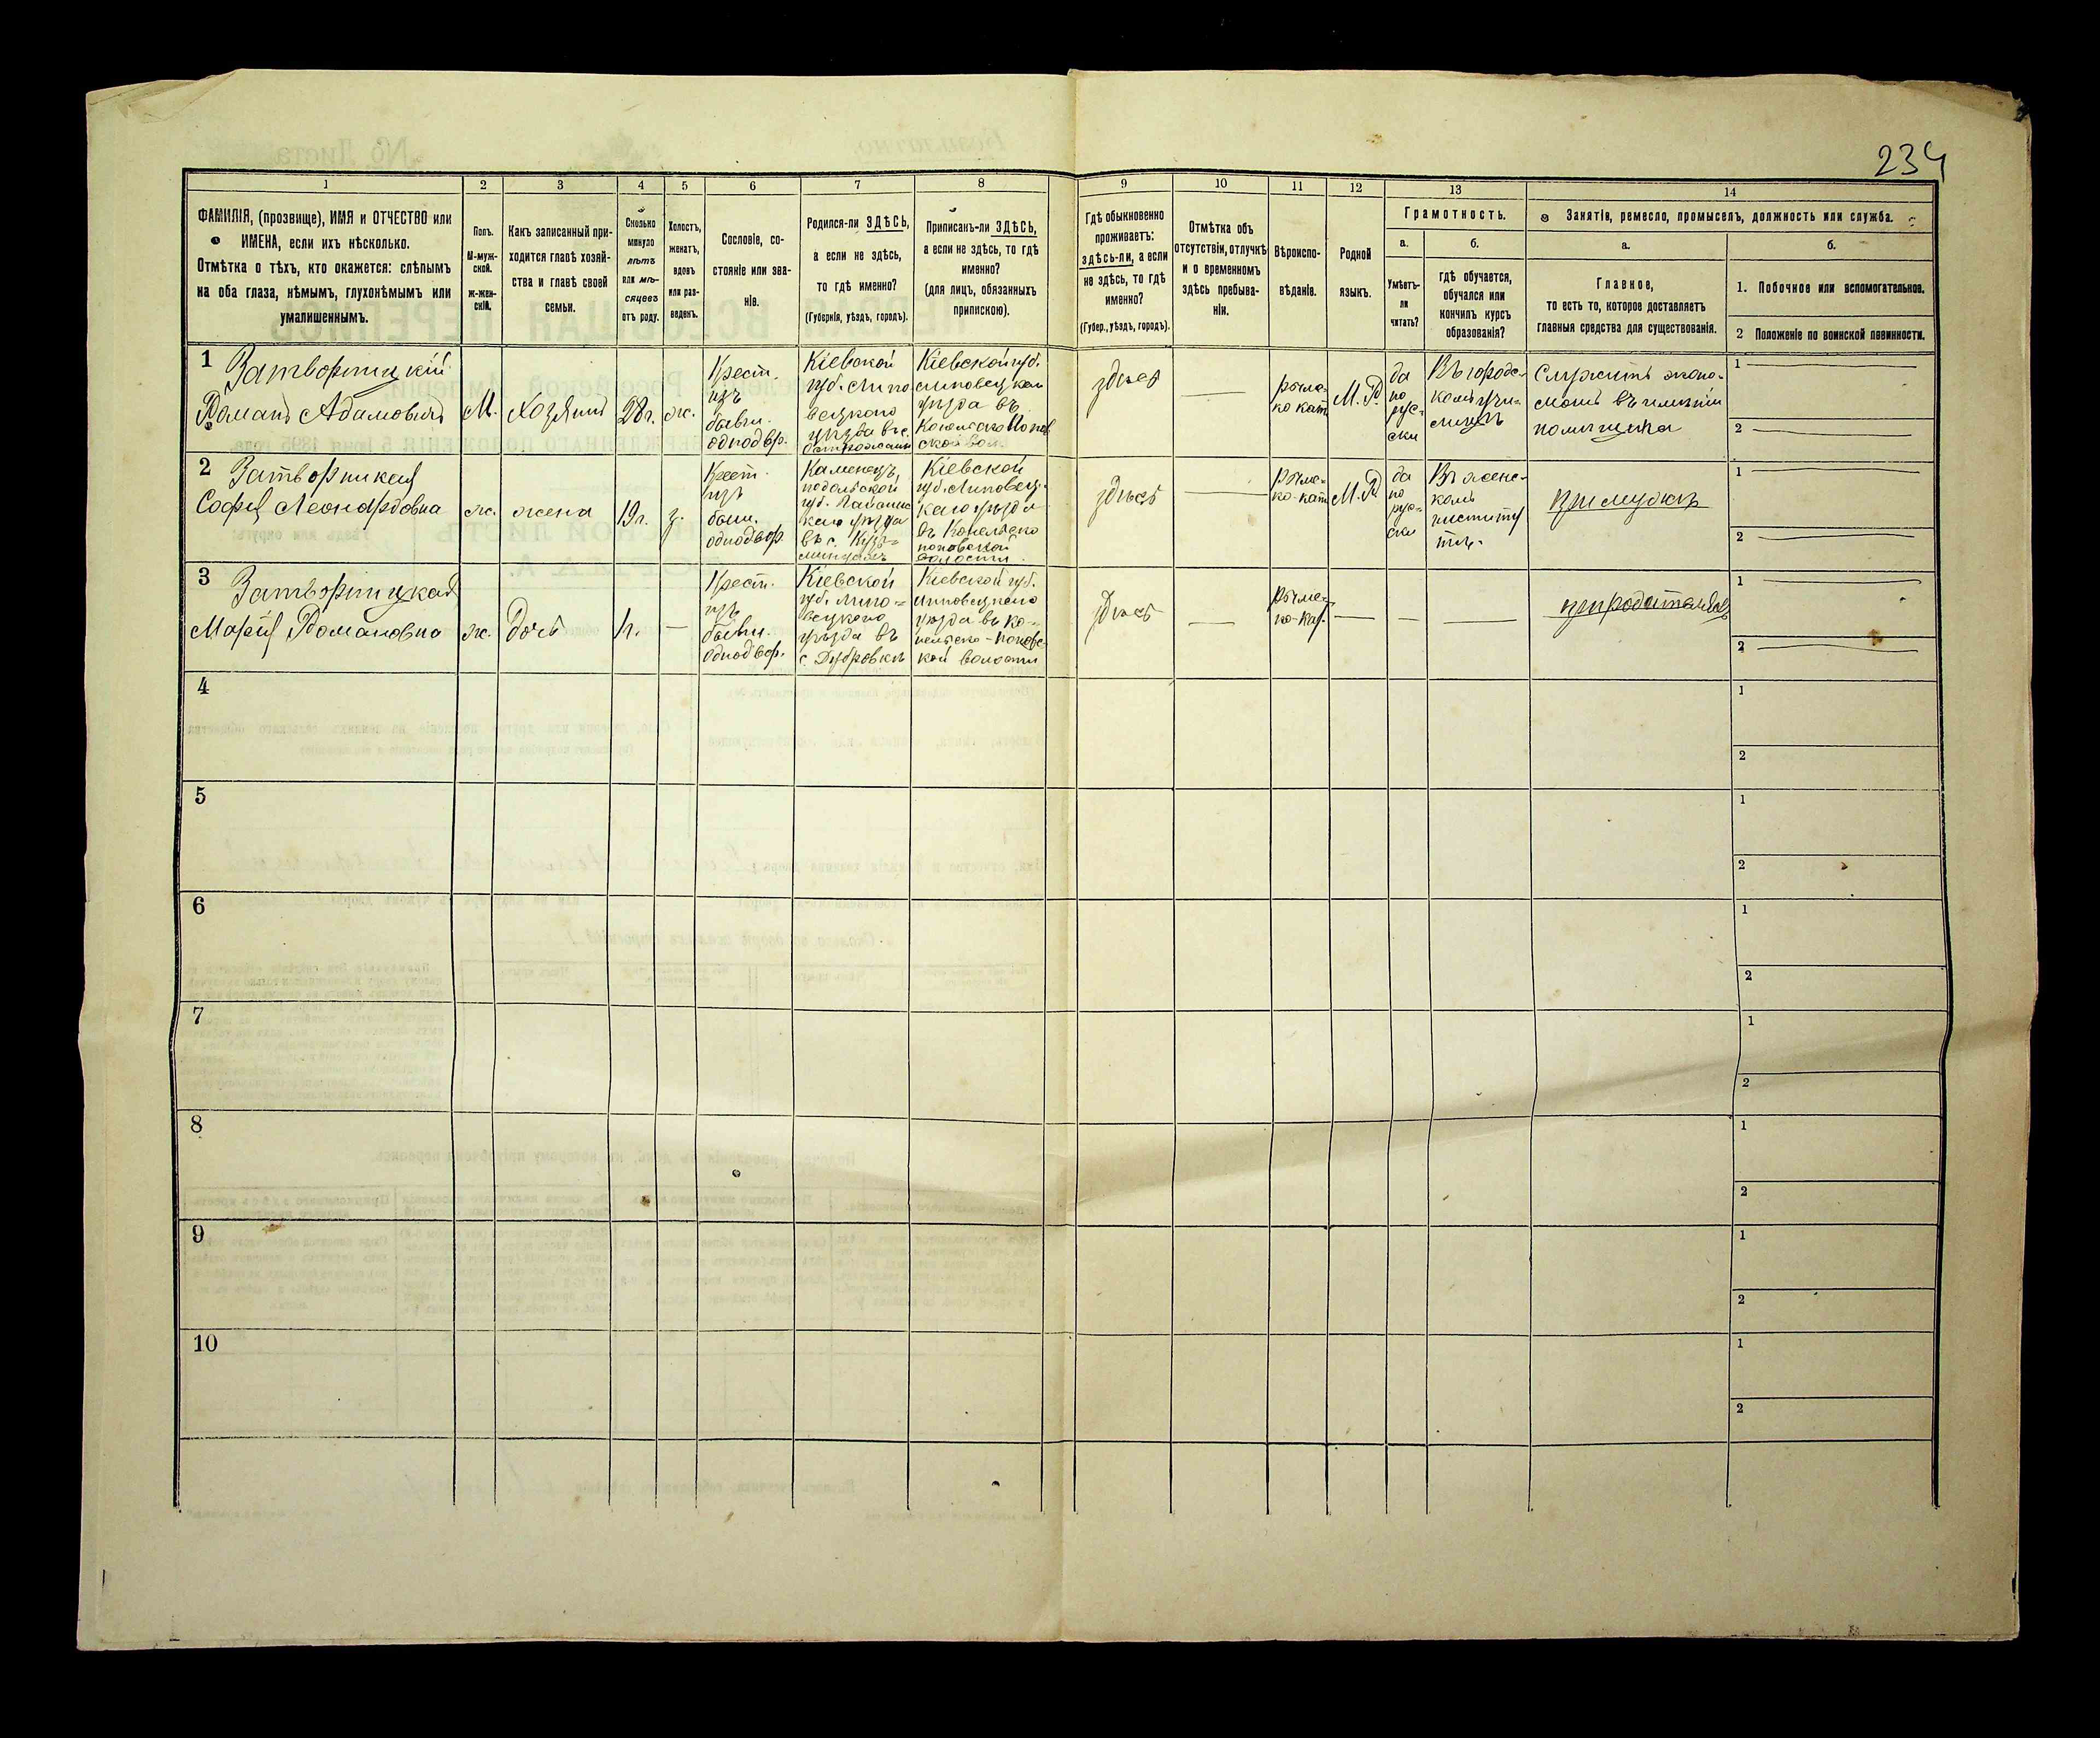 234
1
2
3
4
5
6
7
8
9
10
11
12
13
14
ФАМИЛІЯ, (прозвище), ИМЯ и ОТЧЕСТВО или
ИМЕНА, если ихъ нѣсколько.
Отмѣтка о тѣхъ, кто окажется: слѣпымъ
на оба глаза, нѣмымъ, глухонѣмымъ или
умалишеннымъ.
Полъ.
М-муж-
ской.
Ж-жен-
скій.
Какъ записанный при-
ходится главѣ хозяй-
ства и главѣ своей
семьи.
Сколько
минуло
лѣтъ
или мѣ-
сяцевъ
отъ роду.
Холостъ,
женатъ,
вдовъ
или раз-
веденъ.
Сословіе, со-
стояніе или зва-
ніе.
Родился-ли ЗДѢСЬ,
а если не здѣсь,
то гдѣ именно?
(Губернія, уѣздъ, городъ).
Приписанъ-ли ЗДѢСЬ,
а если не здѣсь, то гдѣ
именно?
(для лицъ, обязанныхъ
припискою).
Гдѣ обыкновенно
проживаетъ:
здѣсь-ли, а если
не здѣсь, то гдѣ
именно?
(Губер., уѣздъ, городъ).
Отмѣтка объ
отсутствіи, отлучкѣ
и о временномъ
здѣсь пребыва-
ніи.
Вѣроиспо-
вѣданіе.
Родной
языкъ.
Грамотность.
а.
Умѣетъ-
ли
читать?
б.
гдѣ обучается,
обучался или
кончилъ курсъ
образованія?
Занятіе, ремесло, промыселъ, должность или служба.
а.
Главное,
то есть то, которое доставляетъ
главныя средства для существованія.
б.
1. Побочное или вспомогательное.
2 Положеніе по воинской повинности.
1
Затворницкій
Романъ Адамовичъ
М.
Хозяинъ
28 г.
ж.
Крест.
изъ
бывш.
однодвор.
Кіевской
губ. Липо
вецкаго
уѣзда въ с.
Кіевской губ.
Липовецкаго
уѣзда въ
здѣсь
римс-
ко кат
М. Р.
да
по
рус-
ски
Въ городс-
комъ учи-
лищѣ
Служитъ эконо-
момъ въ имѣніи
помѣщика
1
2
2
Затворницкая
Софія Леонардовна
ж.
жена
19 г.
з.
Крест.
изъ
бывш.
однодвор.
Каменецъ
подольской
губ. Гайсинс
каго уѣзда
въ с. Кузь-
минцахъ
Кіевской
губ. Липовец-
каго уѣзда
въ Конельско
поповской
волости
здѣсь
Римс-
ко-кат
М. Р.
да
по
рус-
ски
Въ женс-
комъ
институ
тѣ.
при мужѣ
1
2
3
Затворницкая
Марія Романовна
ж.
дочь
1 г.
Крест.
изъ
бывш.
однодвор.
Кіевской
губ. Липо-
вецкаго
уѣзда въ
с. Дубровкѣ
Кіевской губ.
Липовецкаго
уѣзда въ Ко-
нельско-поповс-
кой волости
здѣсь
Римс-
ко-кат.
при родителяхъ
1
2
4
1
2
5
1
2
6
1
2
7
1
2
8
1
2
9
1
2
10
1
2